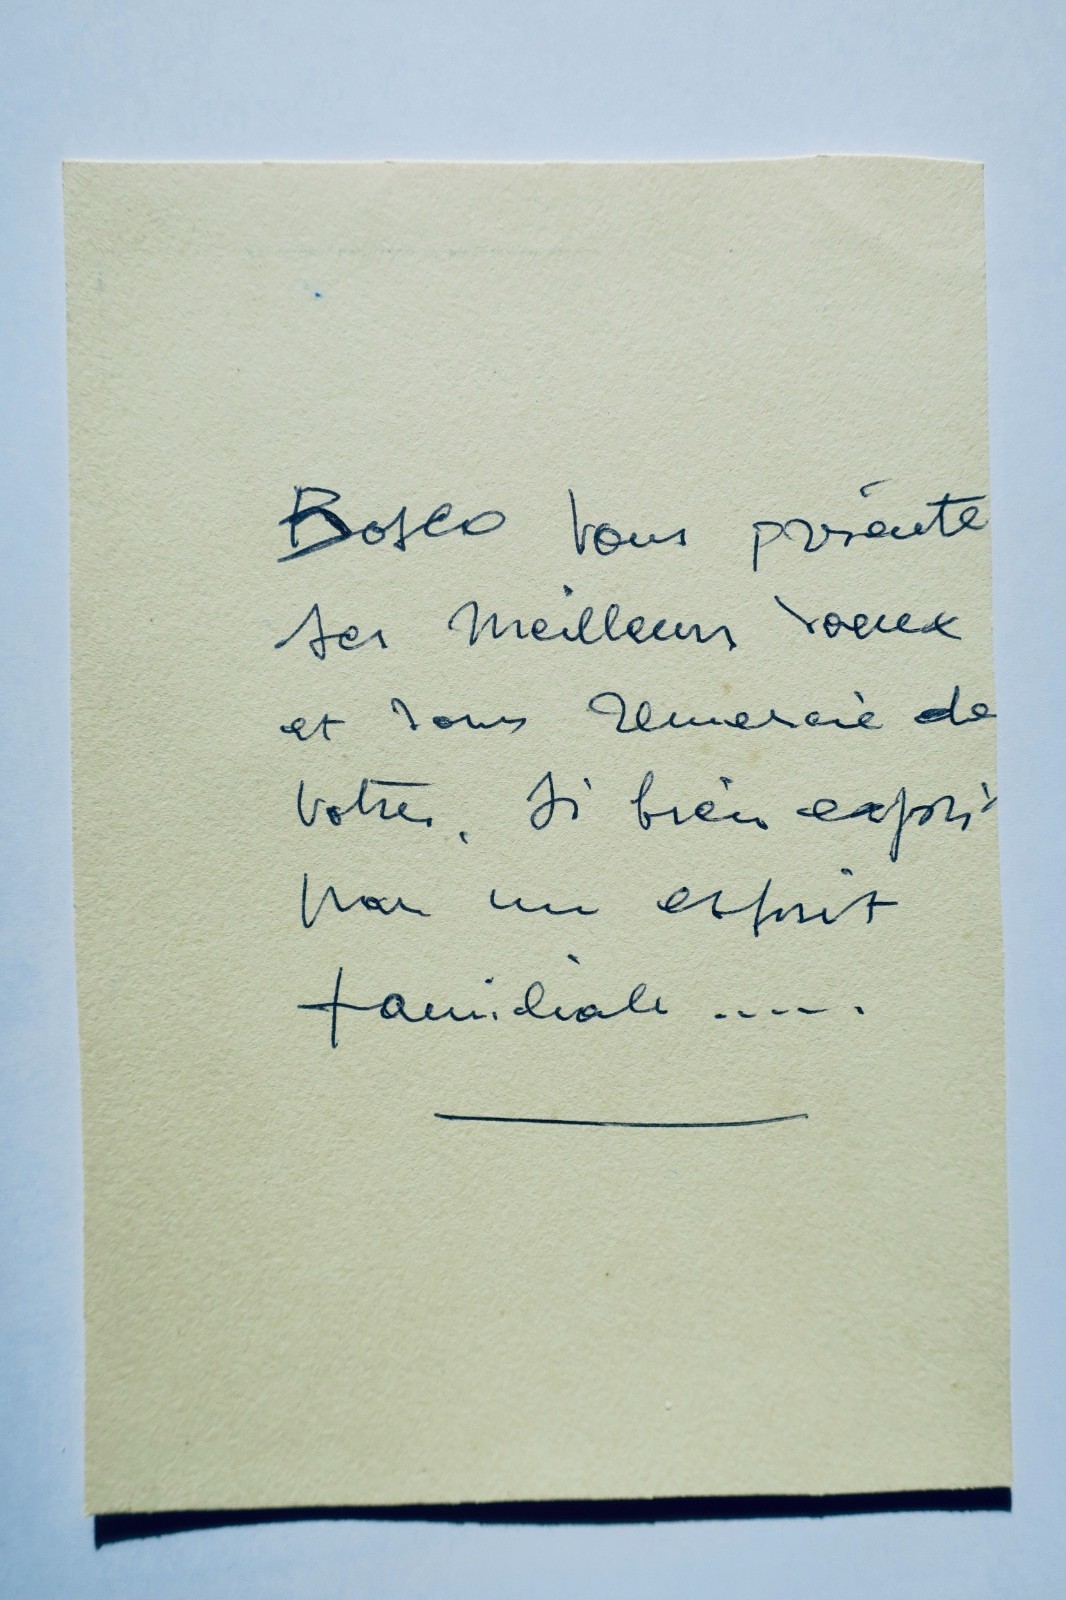 Bosco vous présente
ses meilleurs voeux
et vous remercie de
votres, si bien expri
par un esprit
familiale .....